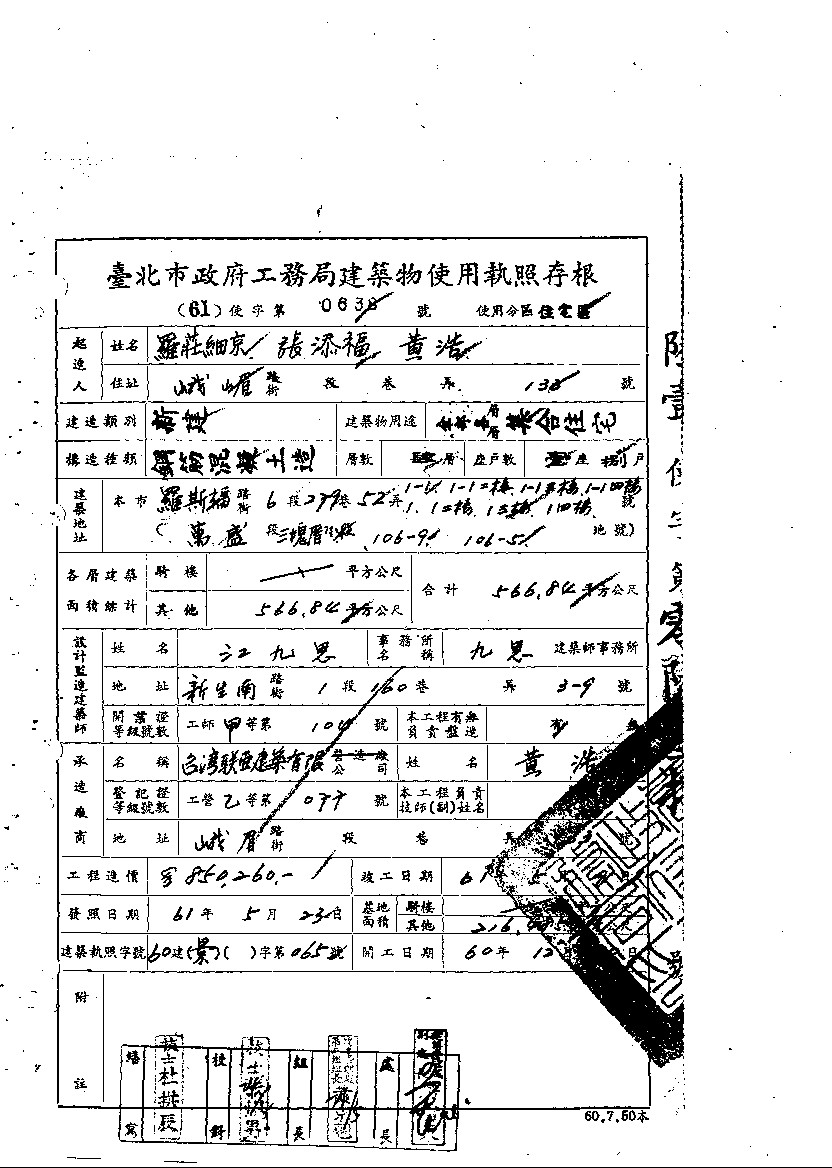 臺北市政府工務局建築物使用執照存根
(61)使字第 0638 號 使用分區 住宅區
起造人 姓名 羅莊細京 張添福 黃浩
住址 峨嵋 路街 段 巷 弄 號
建造類別 新建 建築物用途 集合住宅
構造種類 鋼筋混凝土造 層數 層 座戶數 壹座 捌戶
建築地址 本市 羅斯福 路街 6 段 279 巷 52 弄 1-1, 1-1二樓, 1-1三樓, 1-1四樓 號
1, 1二樓, 1三樓, 1四樓
(萬盛 段 106-9, 106-5 地號)
各層建築面積總計 騎樓 平方公尺 合計 566.84 平方公尺
其他 566.84 平方公尺
設計監造建築師 姓名 江九思 事務所名稱 九思 建築師事務所
地址 新生南 路街 1 段 160 巷 弄 3-9 號
開業證等級號數 工師 甲 等第 104 號 本工程有無負責監造 有 無
承造廠商 名稱 台湾联亞建築有限 營造廠公司 姓名 黃浩
登記證等級號數 工營 乙 等第 077 號 本工程負責技師(副)姓名
地址 峨眉 路街 段 巷 弄 號
工程造價 850,260.- 竣工日期 61
發照日期 61 年 5 月 23 日 基地面積 騎樓
其他 216
建築執照字號 60 建(景)( )字第 065 號 開工日期 60 年 12 日
附註
繕寫 校對 組長 處長
60.7.50本